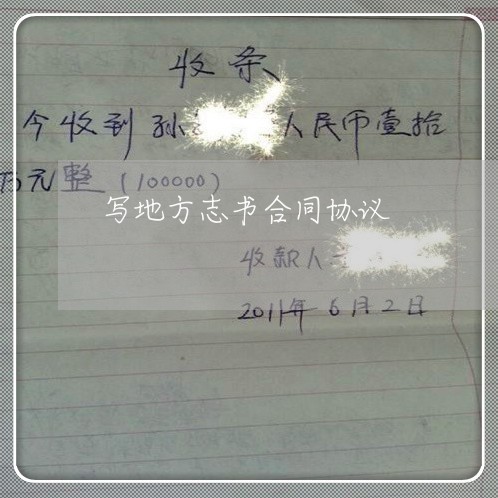 收条
今收到孙 人民币壹拾
万元整（100000）
写地方志书合同协议
收款人
2011年6月2日